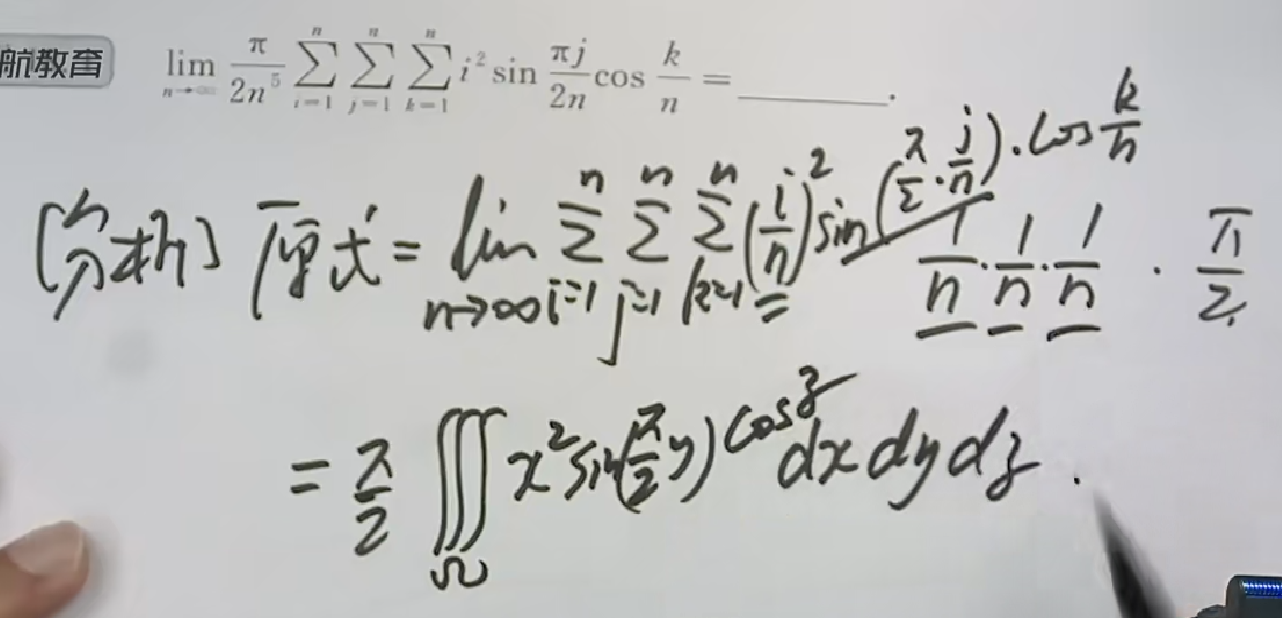 航教育
lim n→∞ π/2n⁵ ∑ i=1 n ∑ j=1 n ∑ k=1 n i² sin πj/2n cos k/n = ________.
[分析] 原式 = lim n→∞ ∑ i=1 n ∑ j=1 n ∑ k=1 n (i/n)² sin(π/2 · j/n) · cos k/n 1/n · 1/n · 1/n · π/2
= π/2 ∭Ω x² sin(π/2 y) cos z dx dy dz.